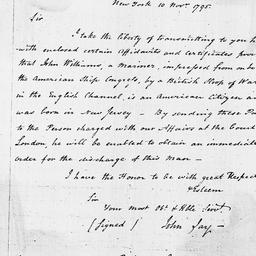 New York 10 Novr. 1795.
Sir
I take the liberty of transmitting to you he
with enclosed certain Affidavits and Certificates prov
that John Williams, a Mariner, impressed from on b
the American Ship Congress, by a British Sloop of War
in the English Channel, is an American Citizen an
was born in New Jersey — By sending these P
to the Person charged with our Affairs at the Court
London, he will be enabled to obtain an immediat
order for the discharge of this Man —
I have the Honor to be with great Respect
Esteem
Sir
Your most Obt. & Hble Servt.
(Signed) John Jay —